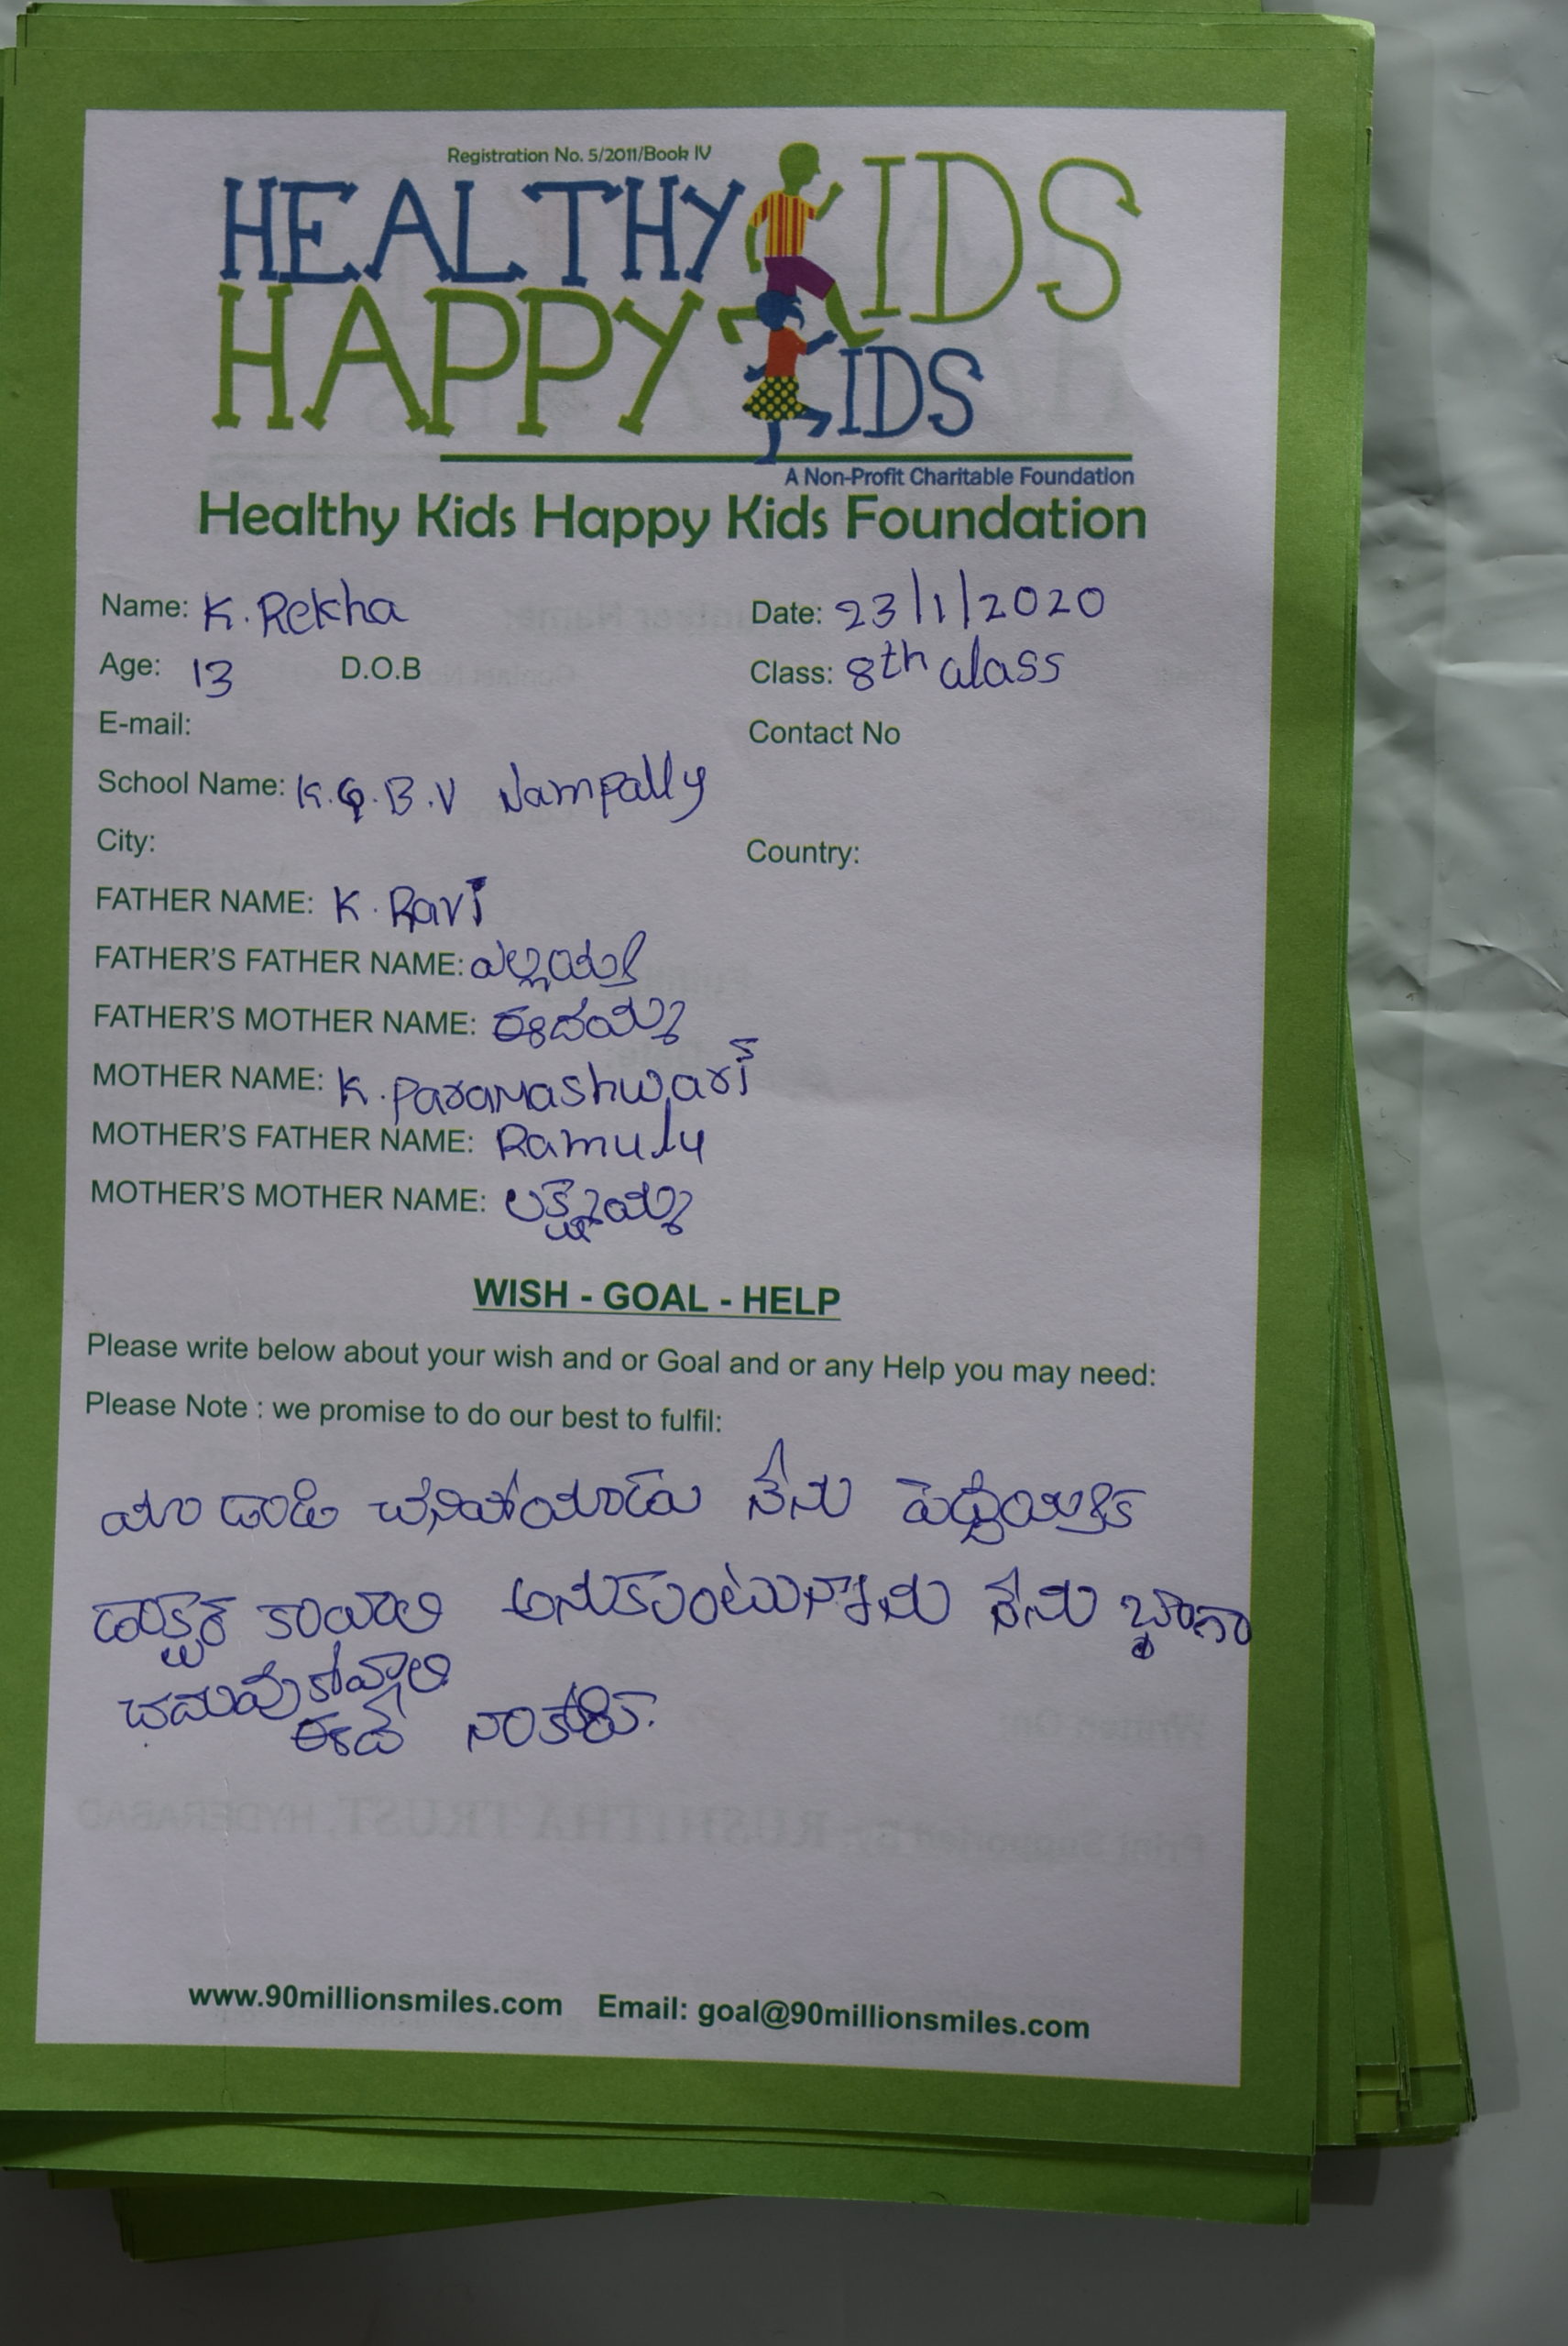 Registration No. 5/2011/Book IV
HEALTHY KIDS
HAPPY KIDS
A Non-Profit Charitable Foundation
Healthy Kids Happy Kids Foundation
Name: K. Rekha Date: 23/1/2020
Age: 13 D.O.B Class: 8th class
E-mail: Contact No
School Name: K.G.B.V Nampally
City: Country:
FATHER NAME: K. Ravi
FATHER'S FATHER NAME: ఎల్లయ్య
FATHER'S MOTHER NAME: ఈదమ్మ
MOTHER NAME: K. Paramashwari
MOTHER'S FATHER NAME: Ramulu
MOTHER'S MOTHER NAME: లక్ష్మమ్మ
WISH - GOAL - HELP
Please write below about your wish and or Goal and or any Help you may need:
Please Note : we promise to do our best to fulfil:
మా డాడి చనిపోయాడు నేను పెద్దయ్యక
డాక్టర్ కావాలి అనుకుంటున్నాను నేను బ్బాగా
చదువుకోవ్వాలి
ఈదే నాకోరిక.
www.90millionsmiles.com Email: goal@90millionsmiles.com